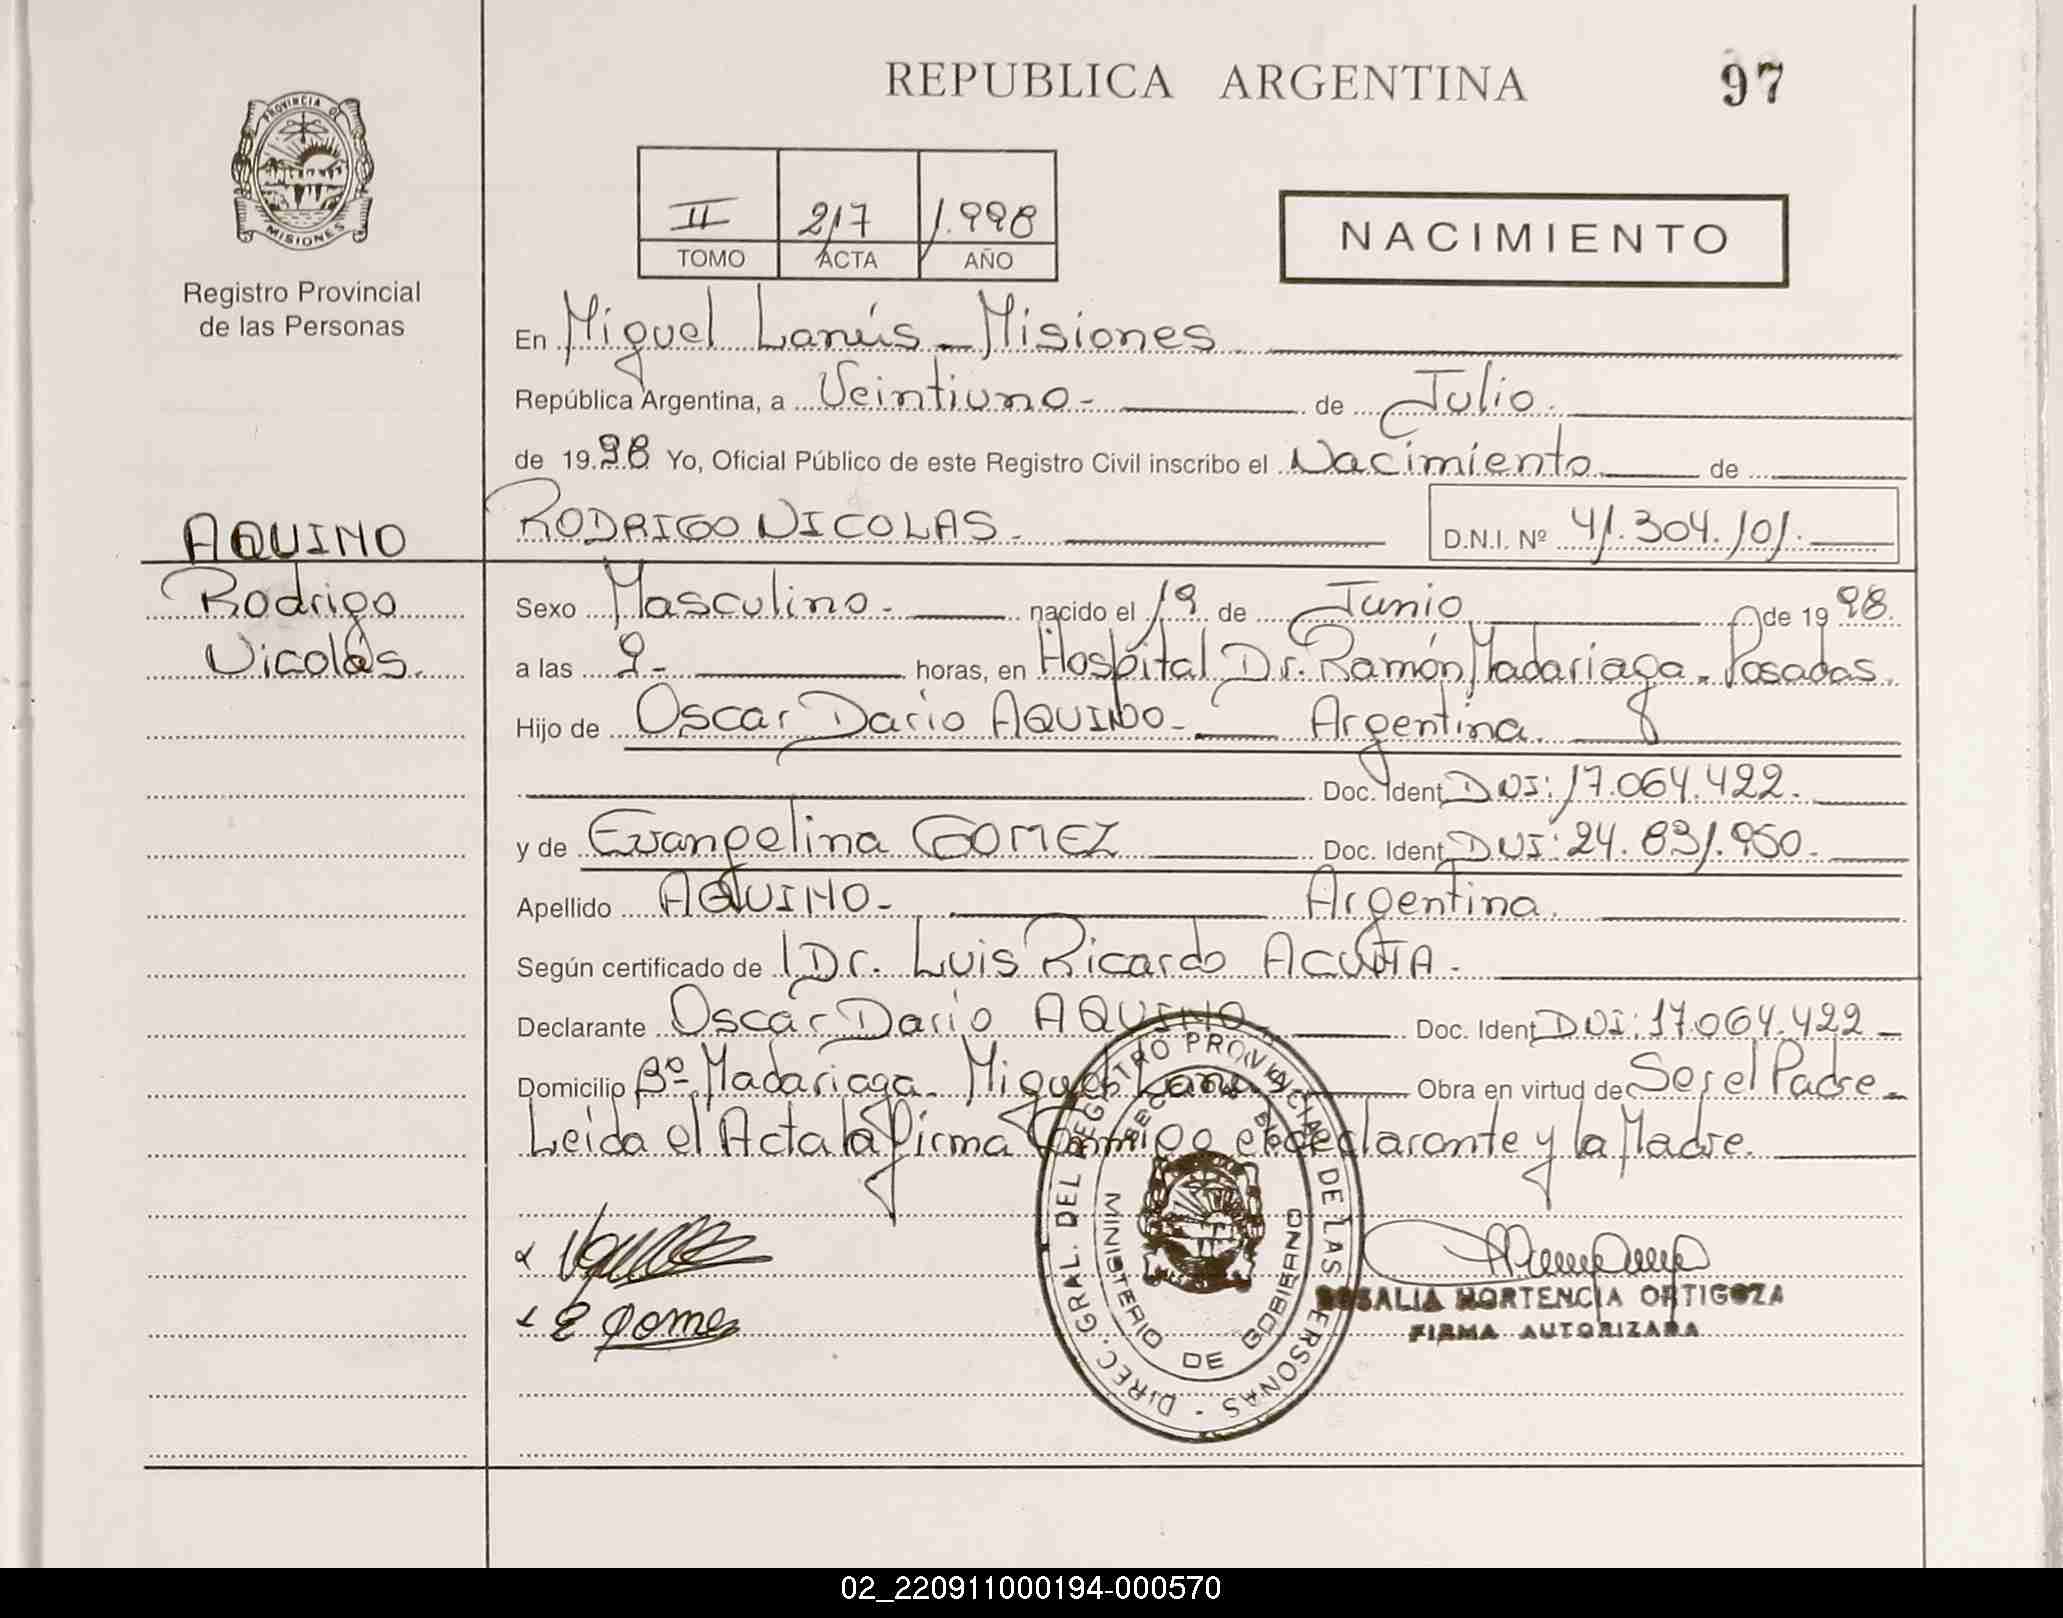 REPUBLICA ARGENTINA
97
PROVINCIA DE
MISIONES
Registro Provincial
de las Personas
II 217 1.998
TOMO ACTA AÑO
NACIMIENTO
En Miguel Lanús - Misiones
República Argentina, a Veintiuno - de Julio.
de 1998 Yo, Oficial Público de este Registro Civil inscribo el Nacimiento de
AQUINO
RODRIGO NICOLAS. D.N.I. Nº 41.304.101.
Rodrigo
Nicolás.
Sexo Masculino. nacido el 19 de Junio de 1998.
a las 9- horas, en Hospital Dr. Ramón Madariaga. Posadas.
Hijo de Oscar Dario AQUINO- Argentina.
Doc. Ident DNI: 17.064.422.
y de Evangelina GOMEZ Doc. Ident DNI: 24.831.950.
Apellido AQUINO- Argentina.
Según certificado de Dr. Luis Ricardo ACUÑA.
Declarante Oscar Dario AQUINO- Doc. Ident DNI: 17.064.422 -
Domicilio Bº Madariaga - Miguel Lanús Obra en virtud de Ser el Padre -
Leída el Acta la firma Conmigo el declarante y la Madre.
E Gomez
DIREC. GRAL. DEL REGISTRO PROVINCIAL DE LAS PERSONAS -
MINISTERIO DE GOBIERNO
ROSALIA HORTENCIA ORTIGOZA
FIRMA AUTORIZADA
02_220911000194-000570